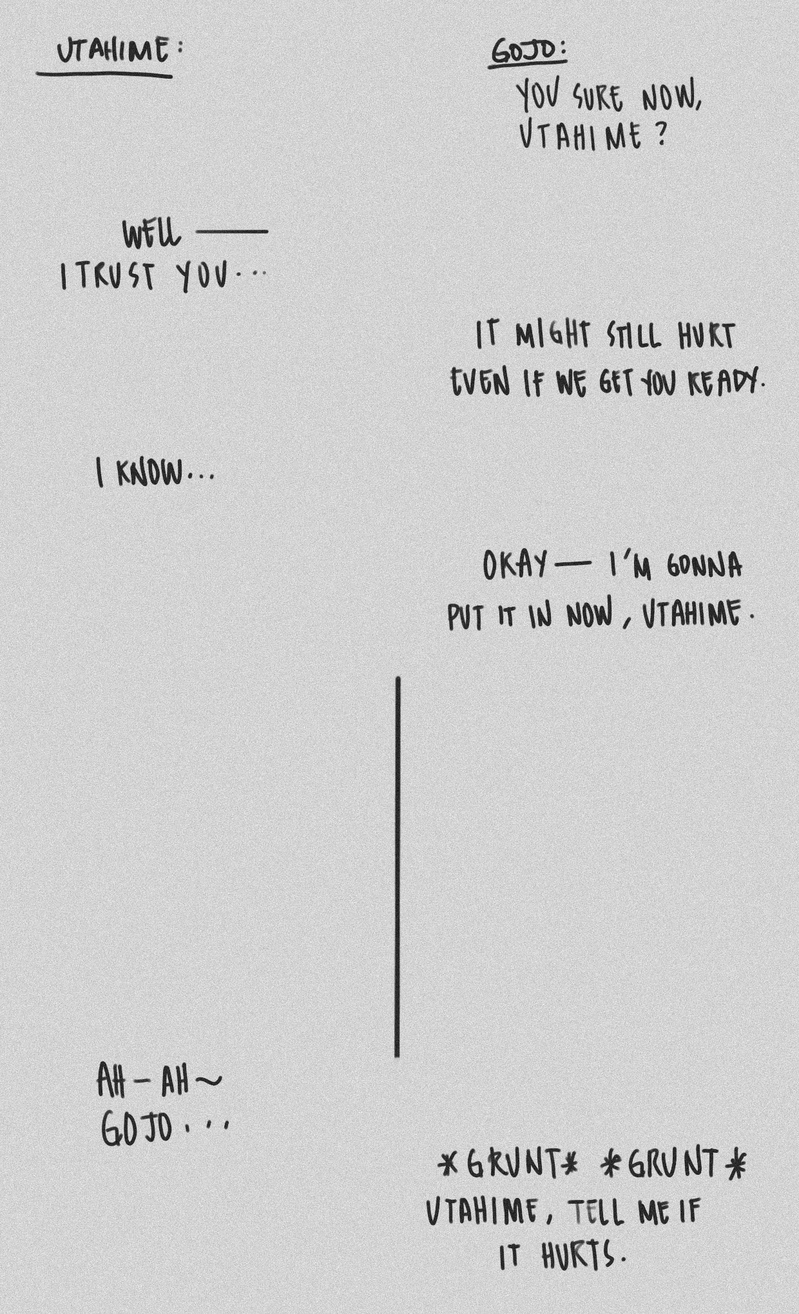 UTAHIME:
GOJO:
YOU SURE NOW,
UTAHIME?
WELL ——
I TRUST YOU...
IT MIGHT STILL HURT
EVEN IF WE GET YOU READY.
I KNOW...
OKAY — I'M GONNA
PUT IT IN NOW, UTAHIME.
AH - AH ~
GOJO...
*GRUNT* *GRUNT*
UTAHIME, TELL ME IF
IT HURTS.